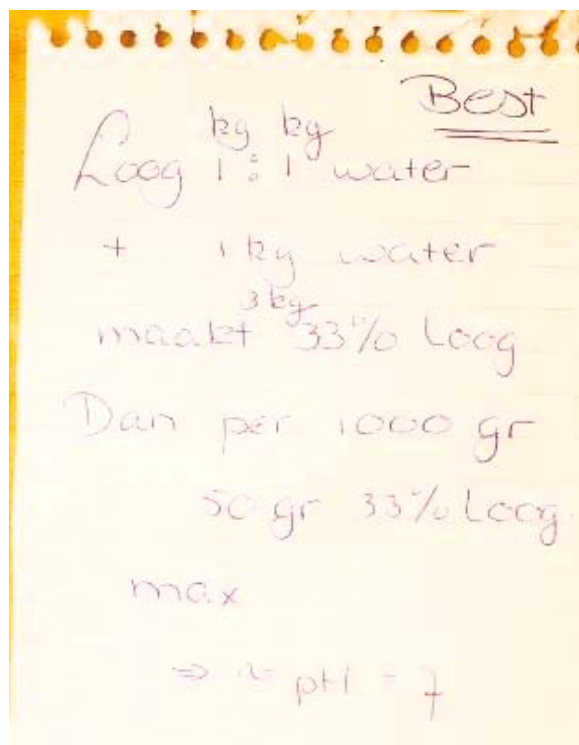 Best
kg kg
Loog 1 : 1 water
+ 1 kg water
3 kg
maakt 33% Loog
Dan per 1000 gr
50 gr 33% Loog.
max
⇒ ± pH = 7